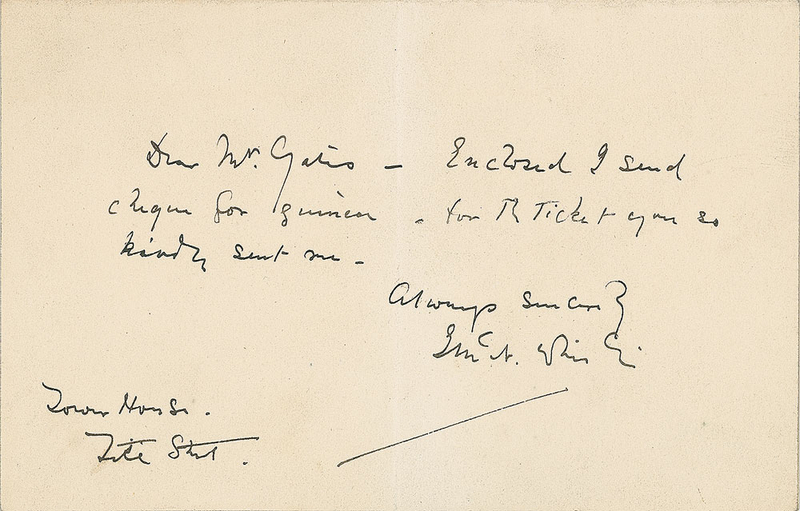 Dear Mr. Gates — Enclosed I send
cheque for guinea. for Th Ticket you so
kindly sent me —
Always sincerely
J McN. Whistler
Tower House.
Tite Street.